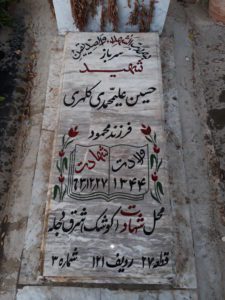 سرباز
شهید
حسین علیمحمدی کلهری
فرزند محمود
ولادت شهادت
۱۳۴۴ ۶۳/۱۲/۲۷
محل شهادت کوشک شرق دجله
قطعه ۲۷ ردیف ۱۲۱ شماره ۳